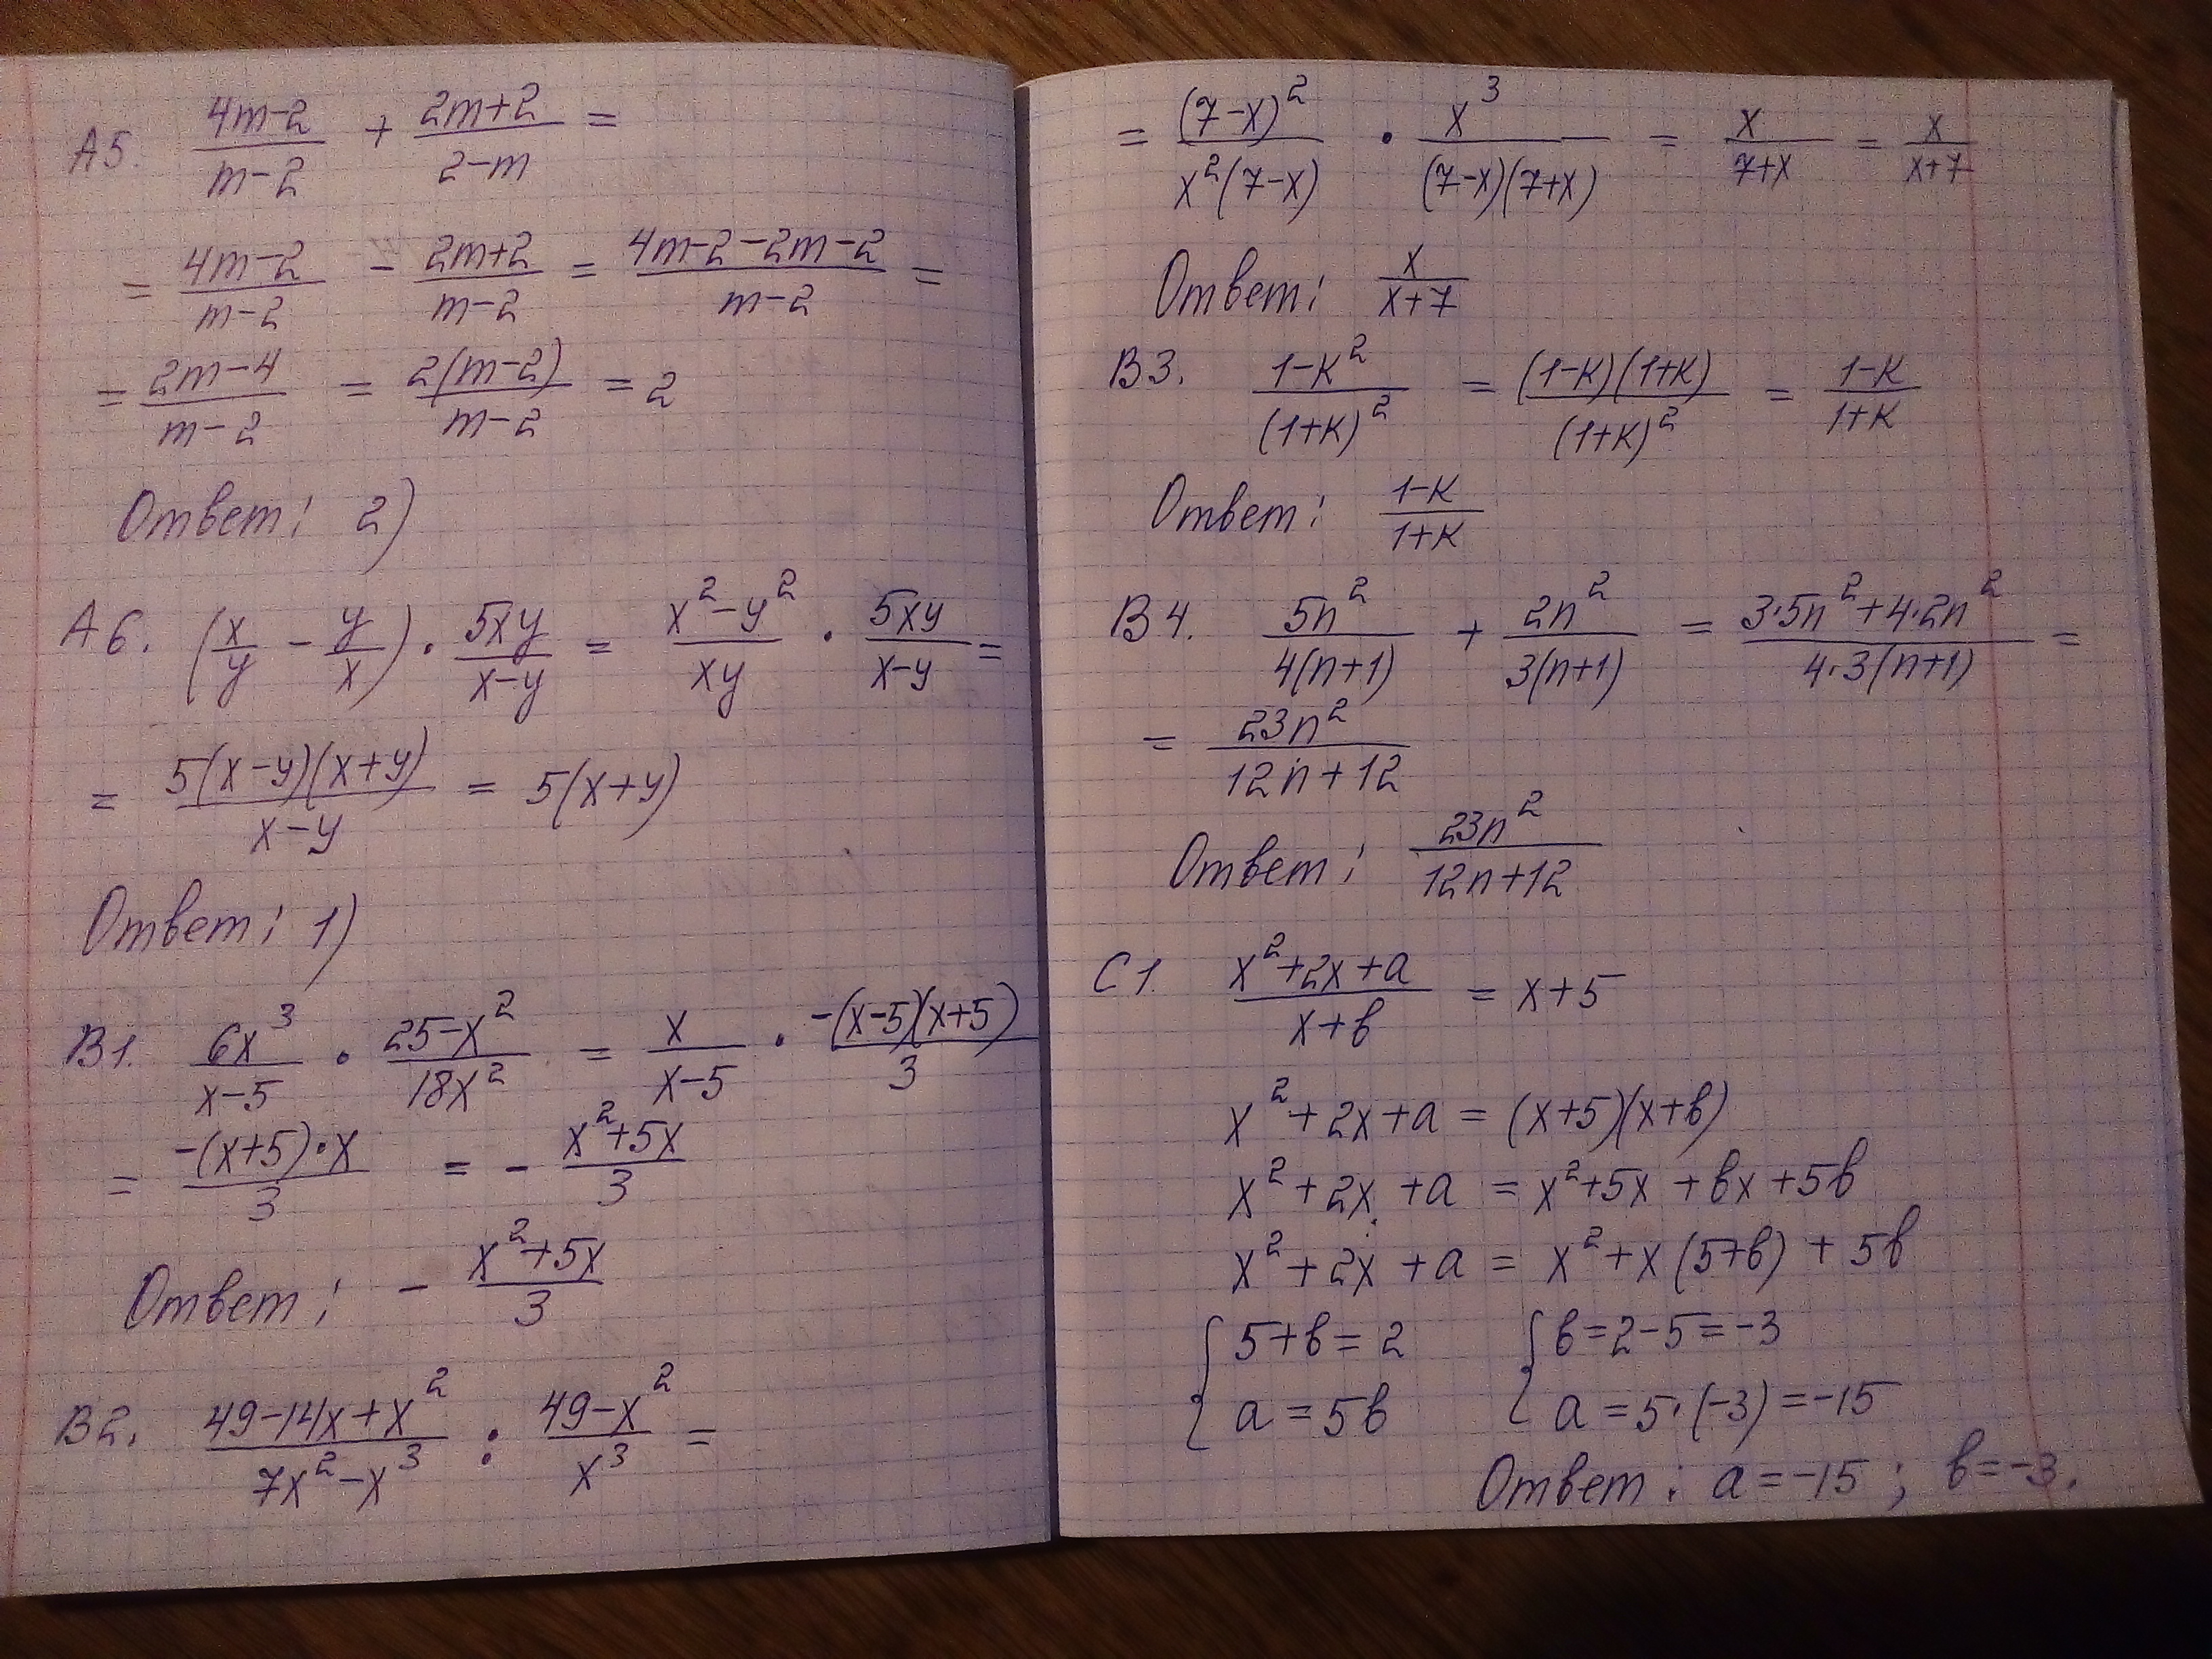 A5. (4m-2)/(m-2) + (2m+2)/(2-m) =
= (4m-2)/(m-2) - (2m+2)/(m-2) = (4m-2-2m-2)/(m-2) =
= (2m-4)/(m-2) = 2(m-2)/(m-2) = 2
Ответ: 2)
A6. (x/y - y/x) · 5xy/(x-y) = (x²-y²)/(xy) · 5xy/(x-y) =
= 5(x-y)(x+y)/(x-y) = 5(x+y)
Ответ: 1)
B1. 6x³/(x-5) · (25-x²)/(18x²) = x/(x-5) · -(x-5)(x+5)/3
= -(x+5)·x/3 = - (x²+5x)/3
Ответ: - (x²+5x)/3
B2. (49-14x+x²)/(7x²-x³) : (49-x²)/x³ =
= (7-x)²/(x²(7-x)) · x³/((7-x)(7+x)) = x/(7+x) = x/(x+7)
Ответ: x/(x+7)
B3. (1-к²)/(1+к)² = (1-к)(1+к)/(1+к)² = (1-к)/(1+к)
Ответ: (1-к)/(1+к)
B4. 5n²/(4(n+1)) + 2n²/(3(n+1)) = (3·5n²+4·2n²)/(4·3(n+1)) =
= 23n²/(12n+12)
Ответ: 23n²/(12n+12)
C1. (x²+2x+a)/(x+в) = x+5
x²+2x+a = (x+5)(x+в)
x²+2x+a = x²+5x+вx+5в
x²+2x+a = x²+x(5+в)+5в
{ 5+в=2 { в=2-5=-3
a=5в a=5·(-3)=-15
Ответ: a=-15; в=-3.